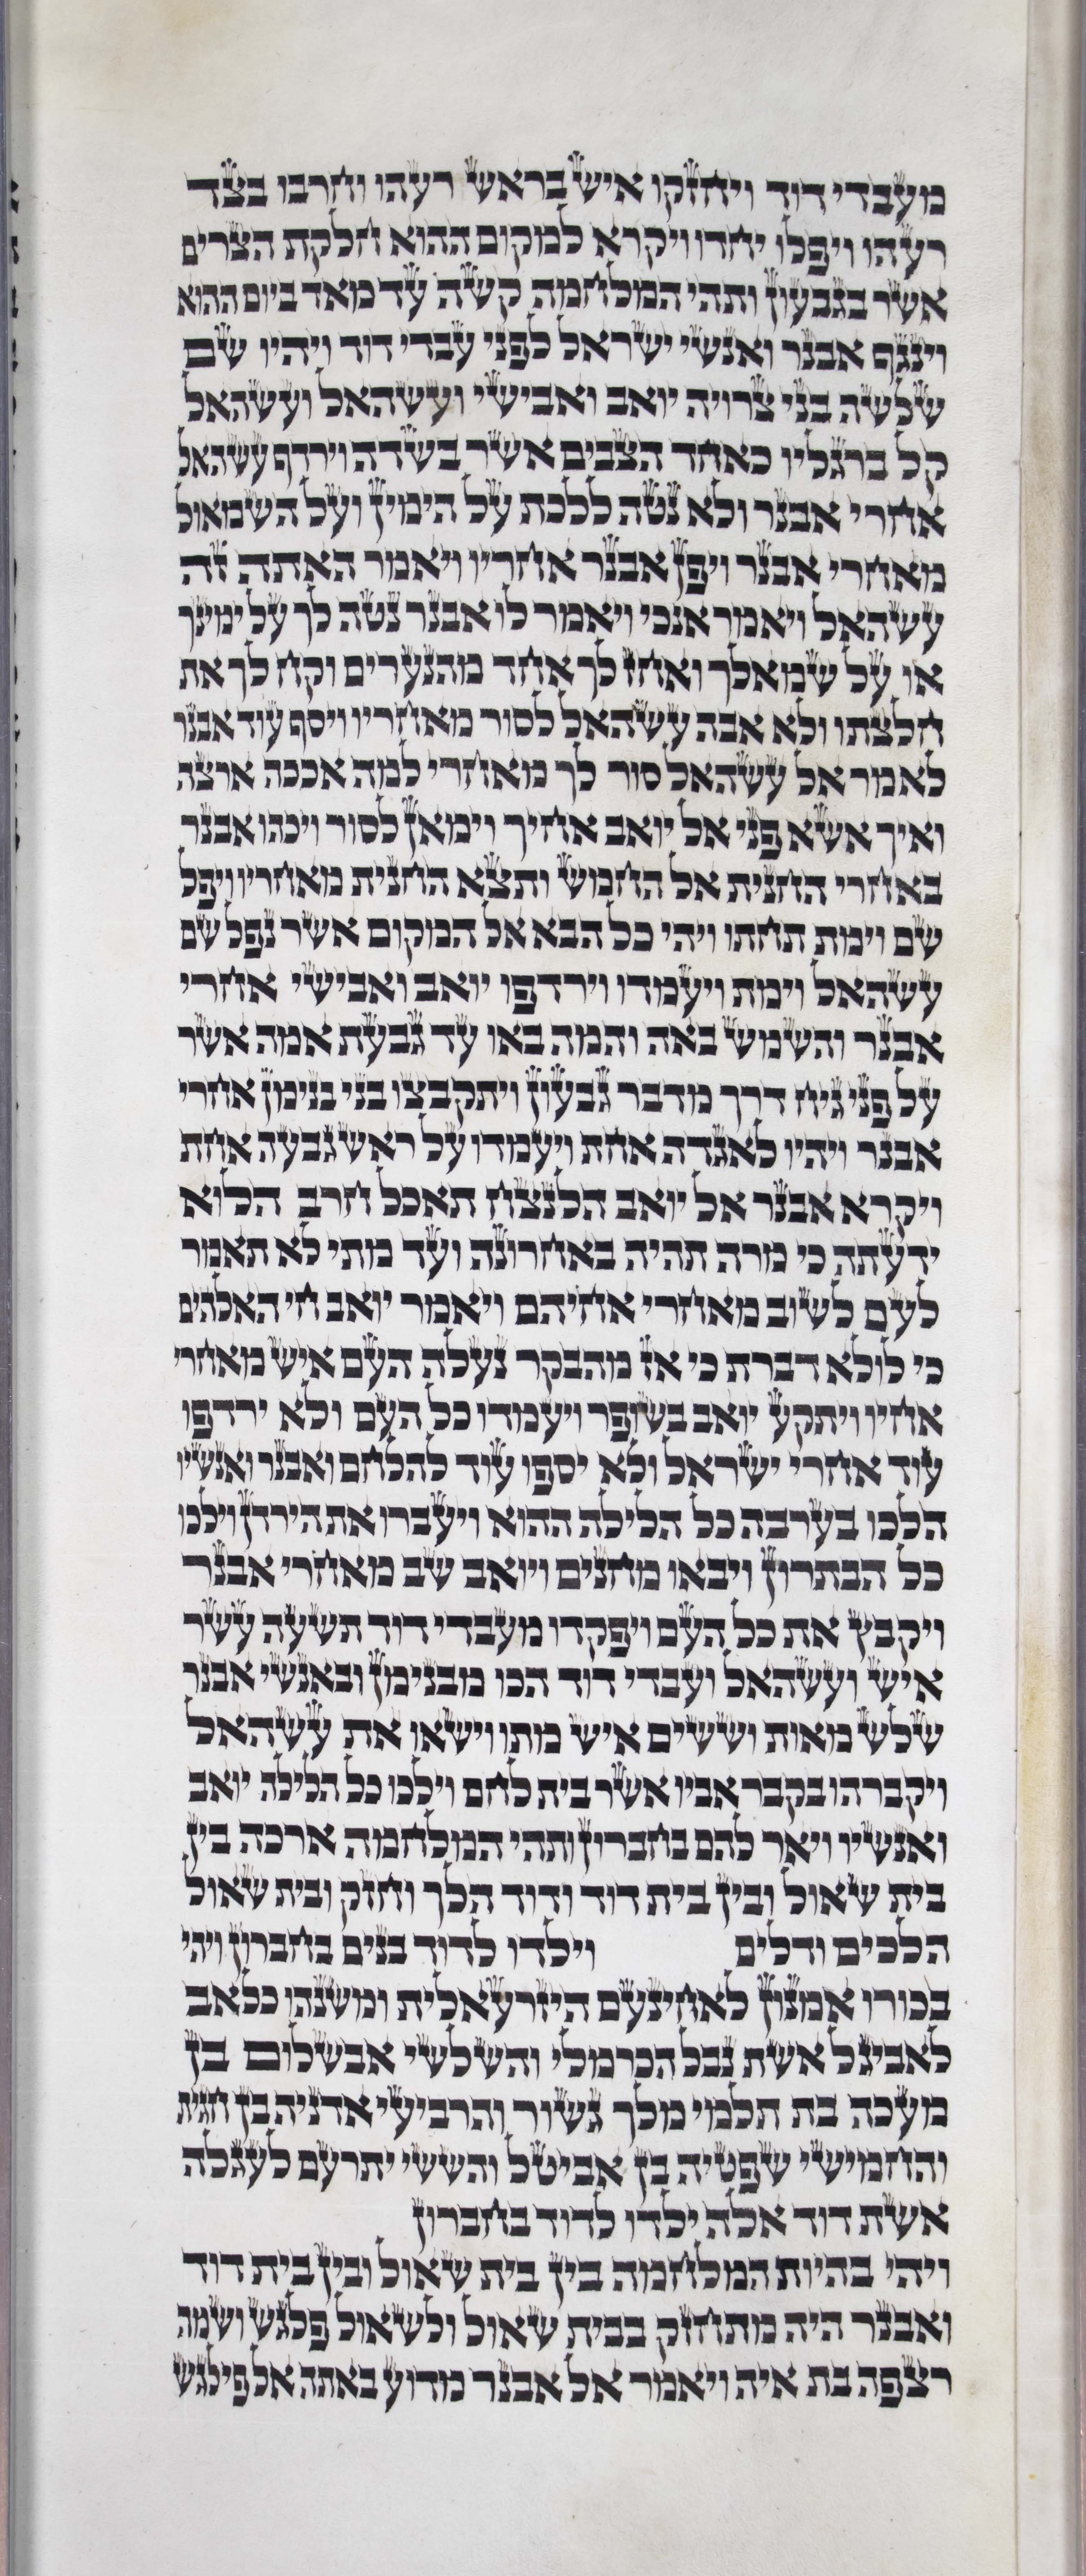 מעבדי דוד ויחזקו איש בראש רעהו וחרבו בצד
רעהו ויפלו יחדו ויקרא למקום ההוא חלקת הצרים
אשר בגבעון ותהי המלחמה קשה עד מאד ביום ההוא
וינגף אבנר ואנשי ישראל לפני עבדי דוד ויהיו שם
שלשה בני צרויה יואב ואבישי ועשהאל ועשהאל
קל ברגליו כאחד הצבים אשר בשדה וירדף עשהאל
אחרי אבנר ולא נטה ללכת על הימין ועל השמאול
מאחרי אבנר ויפן אבנר אחריו ויאמר האתה זה
עשהאל ויאמר אנכי ויאמר לו אבנר נטה לך על ימינך
או על שמאלך ואחז לך אחד מהנערים וקח לך את
חלצתו ולא אבה עשהאל לסור מאחריו ויסף עוד אבנר
לאמר אל עשהאל סור לך מאחרי למה אככה ארצה
ואיך אשא פני אל יואב אחיך וימאן לסור ויכהו אבנר
באחרי החנית אל החמש ותצא החנית מאחריו ויפל
שם וימת תחתו ויהי כל הבא אל המקום אשר נפל שם
עשהאל וימת ויעמדו וירדפו יואב ואבישי אחרי
אבנר והשמש באה והמה באו עד גבעת אמה אשר
על פני גיח דרך מדבר גבעון ויתקבצו בני בנימן אחרי
אבנר ויהיו לאגדה אחת ויעמדו על ראש גבעה אחת
ויקרא אבנר אל יואב הלנצח תאכל חרב הלוא
ידעתה כי מרה תהיה באחרונה ועד מתי לא תאמר
לעם לשוב מאחרי אחיהם ויאמר יואב חי האלהים
כי לולא דברת כי אז מהבקר נעלה העם איש מאחרי
אחיו ויתקע יואב בשופר ויעמדו כל העם ולא ירדפו
עוד אחרי ישראל ולא יספו עוד להלחם ואבנר ואנשיו
הלכו בערבה כל הלילה ההוא ויעברו את הירדן וילכו
כל הבתרון ויבאו מחנים ויואב שב מאחרי אבנר
ויקבץ את כל העם ויפקדו מעבדי דוד תשעה עשר
איש ועשהאל ועבדי דוד הכו מבנימן ובאנשי אבנר
שלש מאות וששים איש מתו וישאו את עשהאל
ויקברהו בקבר אביו אשר בית לחם וילכו כל הלילה יואב
ואנשיו ויאר להם בחברון ותהי המלחמה ארכה בין
בית שאול ובין בית דוד ודוד הלך וחזק ובית שאול
הלכים ודלים וילדו לדוד בנים בחברון ויהי
בכורו אמנון לאחינעם היזרעאלית ומשנהו כלאב
לאביגל אשת נבל הכרמלי והשלשי אבשלום בן
מעכה בת תלמי מלך גשור והרביעי אדניה בן חגית
והחמישי שפטיה בן אביטל והששי יתרעם לעגלה
אשת דוד אלה ילדו לדוד בחברון
ויהי בהיות המלחמה בין בית שאול ובין בית דוד
ואבנר היה מתחזק בבית שאול ולשאול פלגש ושמה
רצפה בת איה ויאמר אל אבנר מדוע באתה אל פילגש